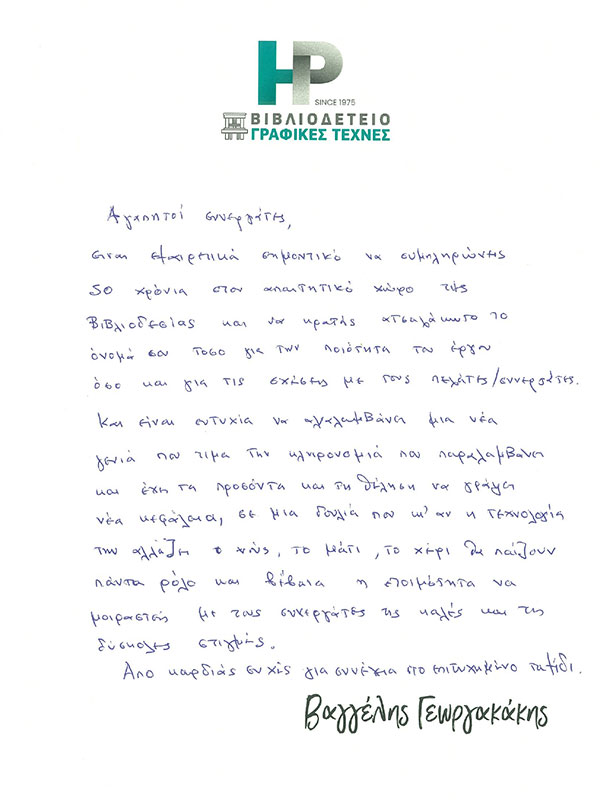 HP
SINCE 1975
ΒΙΒΛΙΟΔΕΤΕΙΟ
ΓΡΑΦΙΚΕΣ ΤΕΧΝΕΣ
Αγαπητοί συνεργάτες,
ειναι εξαιρετικά σημαντικό να συμπληρώνης
50 χρόνια στον απαιτητικό χώρο της
Βιβλιοδεσίας και να κρατής ατσαλάκωτο το
όνομά σου τοσο για την ποιότητα του έργου
όσο και για τις σχέσης με τους πελάτης/συνεργάτες.
Και είναι ευτυχία να αναλαμβάνει μια νέα
γενιά που τιμα την κληρονομιά που παραλαμβάνει
και έχη τα προσόντα και τη θέληση να γράψει
νέα κεφάλαια, σε μια δουλιά που κι' αν η τεχνολογία
την αλλάζη ο νούς, το μάτι, το χέρι θα παίζουν
πάντα ρόλο και βέβαια η ετοιμότητα να
μοιραστής με τους συνεργάτες της καλές και της
δύσκολες στιγμές.
Απο καρδιάς ευχές για συνέχεια στο επιτυχημένο ταξίδι.
Βαγγέλης Γεωργακάκης